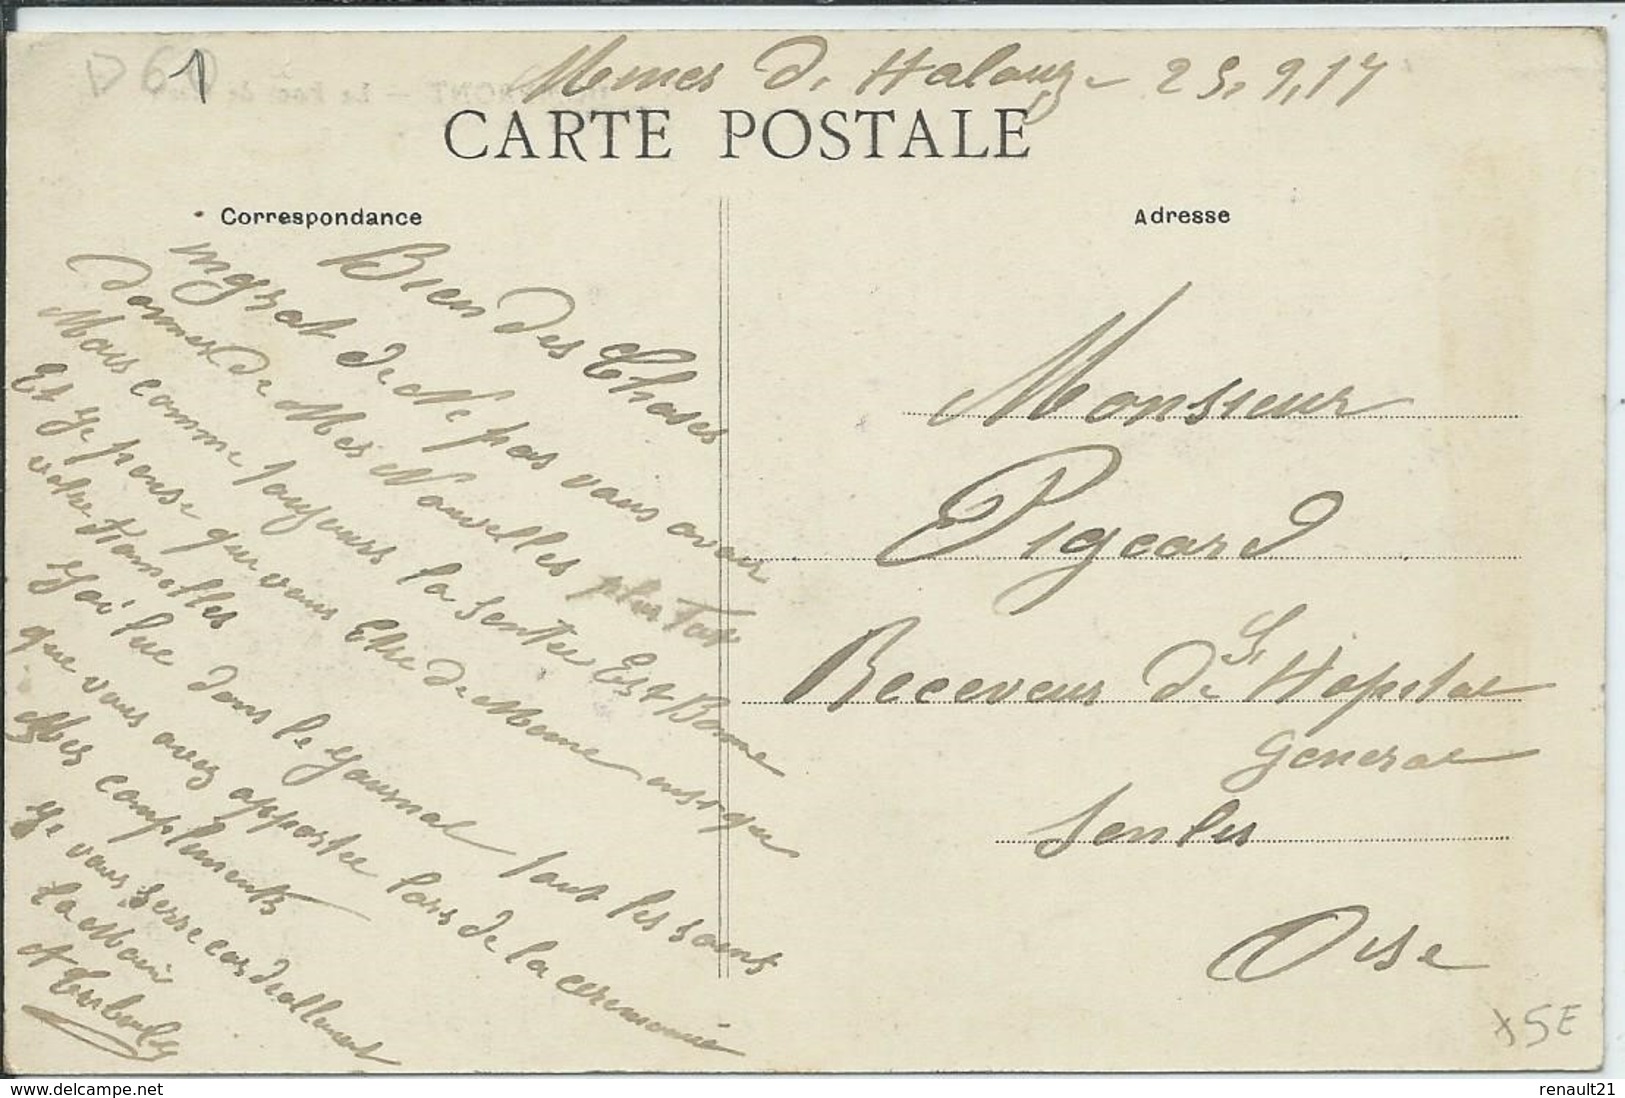 1
Mines de Halouze 25.9.17
CARTE POSTALE
Correspondance
Adresse
Bien des Choses
ingrat de Ne pas vous avoir
donner de Mes Nouvelles plus Tot
Mais comme toujours la Sentee Est Bonne
Et Je pense que vous Etre de Meme ensi que
votre
J'ai lue dans le Journal tout les soins
que vous avez apportee lors de la ceremonie
Mes compliments
Je vous serre cordiallement
la Main
Monsieur
Pigeard
Receveur De L' Hopital
General
Senlis
Oise
x5E
renault21